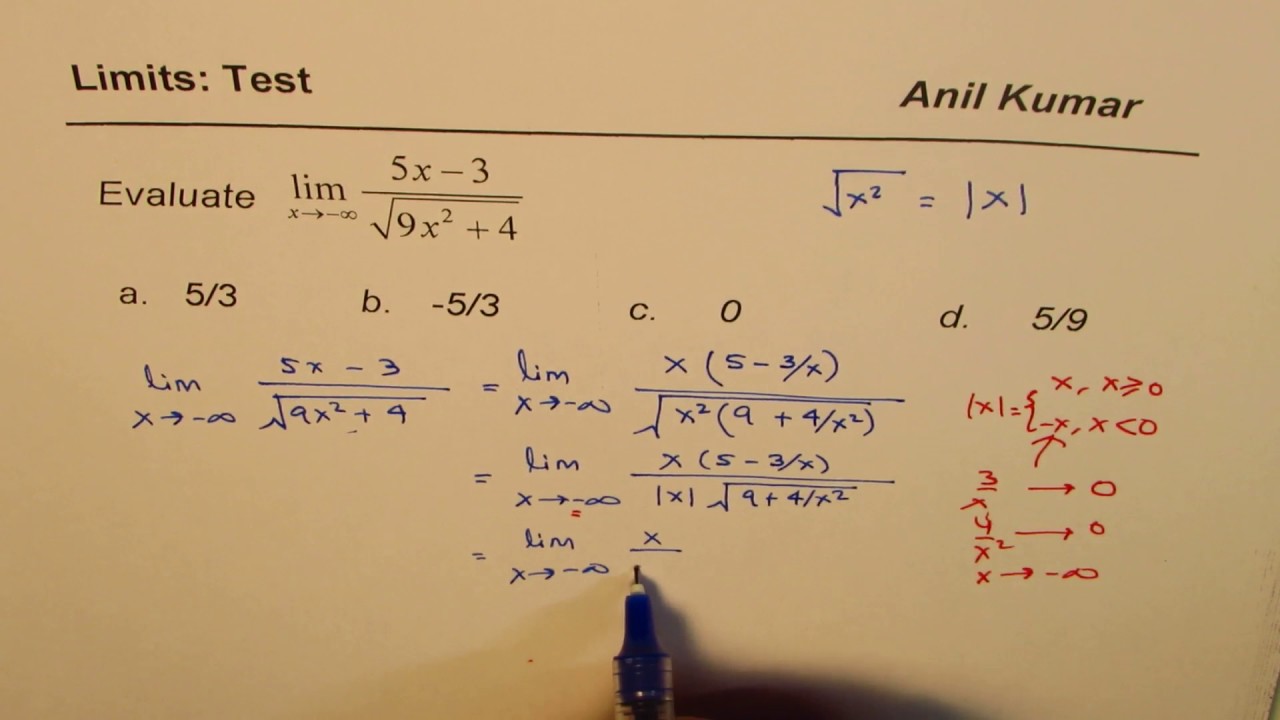 Limits: Test
Anil Kumar
Evaluate lim x→-∞ (5x-3)/√(9x²+4)
√x² = |x|
a. 5/3 b. -5/3 c. 0 d. 5/9
lim x→-∞ (5x-3)/√(9x²+4) = lim x→-∞ x(5-3/x)/√(x²(9+4/x²))
|x|={x, x≥0
-x, x<0
= lim x→-∞ x(5-3/x)/|x|√(9+4/x²)
3/x → 0
4/x² → 0
x → -∞
= lim x→-∞ x